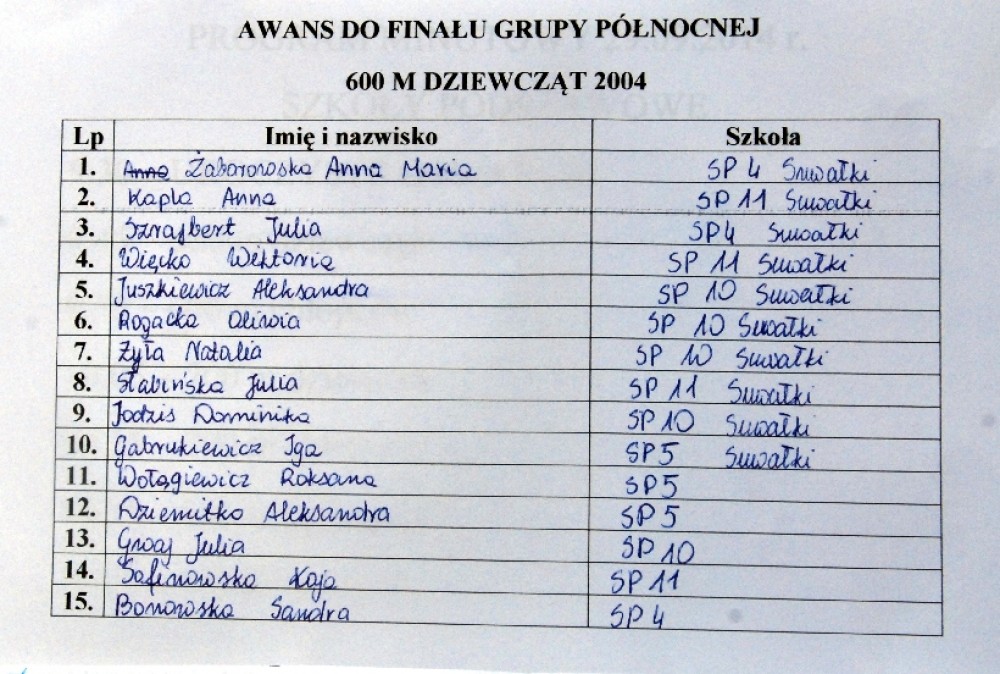 AWANS DO FINAŁU GRUPY PÓŁNOCNEJ
600 M DZIEWCZĄT 2004
Lp Imię i nazwisko Szkoła
1. Anna Żaborowska Anna Maria SP 4 Suwałki
2. Kapla Anna SP 11 Suwałki
3. Sznajbert Julia SP4 Suwałki
4. Więcko Wiktoria SP 11 Suwałki
5. Juszkiewicz Aleksandra SP 10 Suwałki
6. Rogacka Oliwia SP 10 Suwałki
7. Żyła Natalia SP 10 Suwałki
8. Słabińska Julia SP 11 Suwałki
9. Jodzis Dominika SP10 Suwałki
10. Gabrukiewicz Iga SP5 Suwałki
11. Wołągiewicz Roksana SP5
12. Dziemitko Aleksandra SP5
13. Julia SP10
14. Safinowska Kaja SP11
15. Sandra SP4